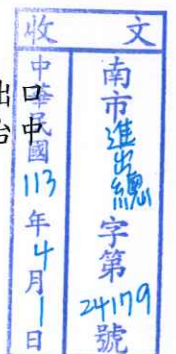 收文
南市進出總字第24179號
中華民國113年4月1日
出口
台中